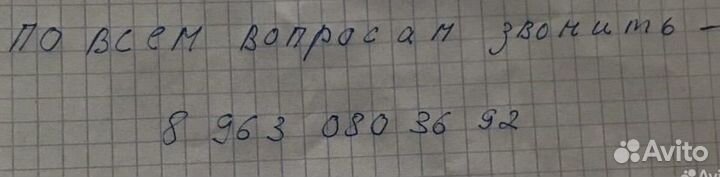 по всем вопросам звонить -
8 963 080 36 92
Avito
Avito